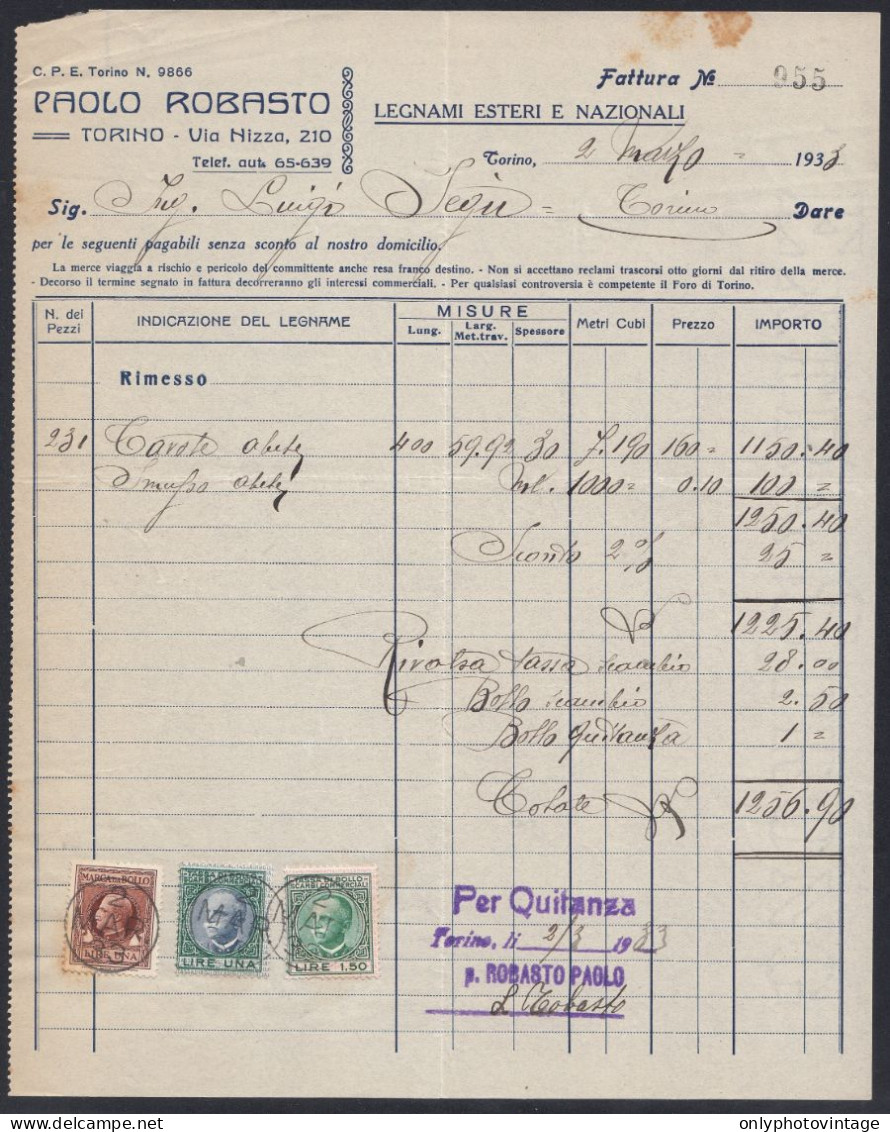 C. P. E. Torino N. 9866
PAOLO ROBASTO
TORINO - Via Nizza, 210
Telef. aut. 65-639
Fattura № 955
LEGNAMI ESTERI E NAZIONALI
Torino, 2 Marzo = 1933
Sig. Ing. Luigi Segù = Torino Dare
per le seguenti pagabili senza sconto al nostro domicilio.
La merce viaggia a rischio e pericolo del committente anche resa franco destino. - Non si accettano reclami trascorsi otto giorni dal ritiro della merce.
- Decorso il termine segnato in fattura decorreranno gli interessi commerciali. - Per qualsiasi controversia è competente il Foro di Torino.
N. dei Pezzi INDICAZIONE DEL LEGNAME MISURE Lung. Larg. Met.trav. Spessore Metri Cubi Prezzo IMPORTO
Rimesso
231 Tavole abete 400 59.92 30 7.190 160= 1150.40
Smusso abete Ml. 1000= 0.10 100 =
1250.40
Sconto 2% 25 =
1225.40
Rivalsa tassa scambio 28.00
Bollo scambio 2.50
Bollo quitanza 1 =
Totale 1256.90
MARCA DA BOLLO
LIRE UNA
2 MAR
LIRE UNA
2 MAR
MARCA DA BOLLO
SCAMBI COMMERCIALI
LIRE 1.50
2 MAR
Per Quitanza
Torino, li 2/3 1933
p. ROBASTO PAOLO
L Robasto
onlyphotovintage